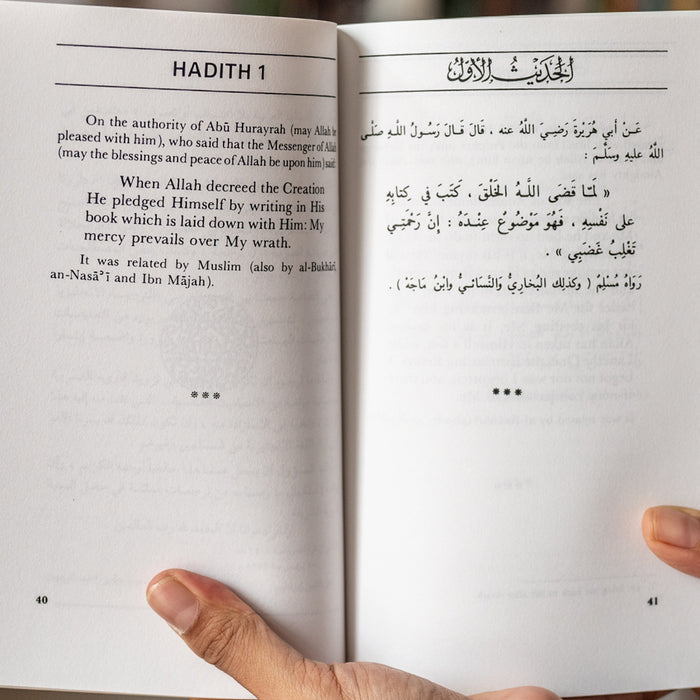 HADITH 1
On the authority of Abū Hurayrah (may Allah be
pleased with him), who said that the Messenger of Allah
(may the blessings and peace of Allah be upon him) said:
When Allah decreed the Creation
He pledged Himself by writing in His
book which is laid down with Him: My
mercy prevails over My wrath.
It was related by Muslim (also by al-Bukhārī,
an-Nasāʾī and Ibn Mājah).
***
40
الحَدِيثُ الأَوَّلُ
عَنْ أَبي هُرَيْرَةَ رَضِيَ اللَّهُ عنه ، قَالَ قَالَ رَسُولُ اللَّهِ صَلَّى
اللَّهُ عليهِ وسَلَّمَ :
« لَمَّا قَضَى اللَّهُ الخَلْقَ ، كَتَبَ فِي كِتابِهِ
على نَفْسِهِ ، فَهُوَ مَوْضُوعٌ عِنْدَهُ : إِنَّ رَحْمَتِي
تَغْلِبُ غَضَبِي » .
رَوَاهُ مُسْلِمٌ ( وكذلك البُخارِيُّ والنَّسَائيُّ وابْنُ مَاجَهْ ) .
***
41